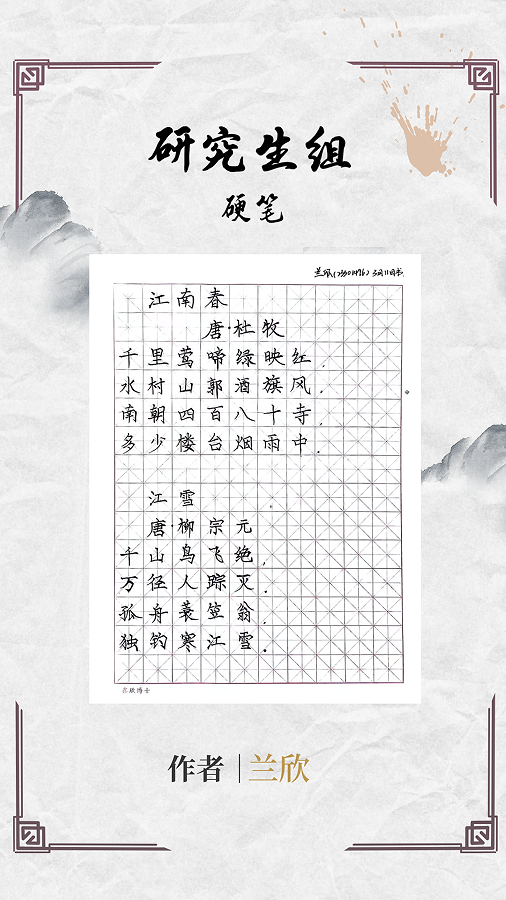 研究生组
硬笔
江南春
唐·杜牧
千里莺啼绿映红，
水村山郭酒旗风。
南朝四百八十寺，
多少楼台烟雨中。
江雪
唐·柳宗元
千山鸟飞绝，
万径人踪灭。
孤舟蓑笠翁，
独钓寒江雪。
作者｜兰欣